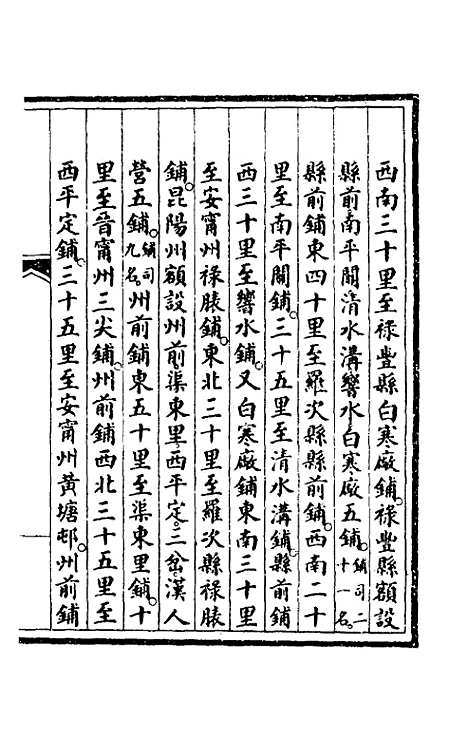 西南三十里至祿豐縣白寒廠鋪祿豐縣額設
縣前南平關清水溝響水白寒廠五鋪鋪司二十一名
縣前鋪東四十里至羅次縣縣前鋪西南二十
里至南平關鋪三十五里至清水溝鋪縣前鋪
西三十里至響水鋪又白寒廠鋪東南三十里
至安甯州祿脿鋪東北三十里至羅次縣祿脿
鋪昆陽州額設州前渠東里西平定三岔漢人
營五鋪鋪司九名州前鋪東五十里至渠東里鋪十
里至晉甯州三尖鋪州前鋪西北三十五里至
西平定鋪三十五里至安甯州黃塘邨州前鋪